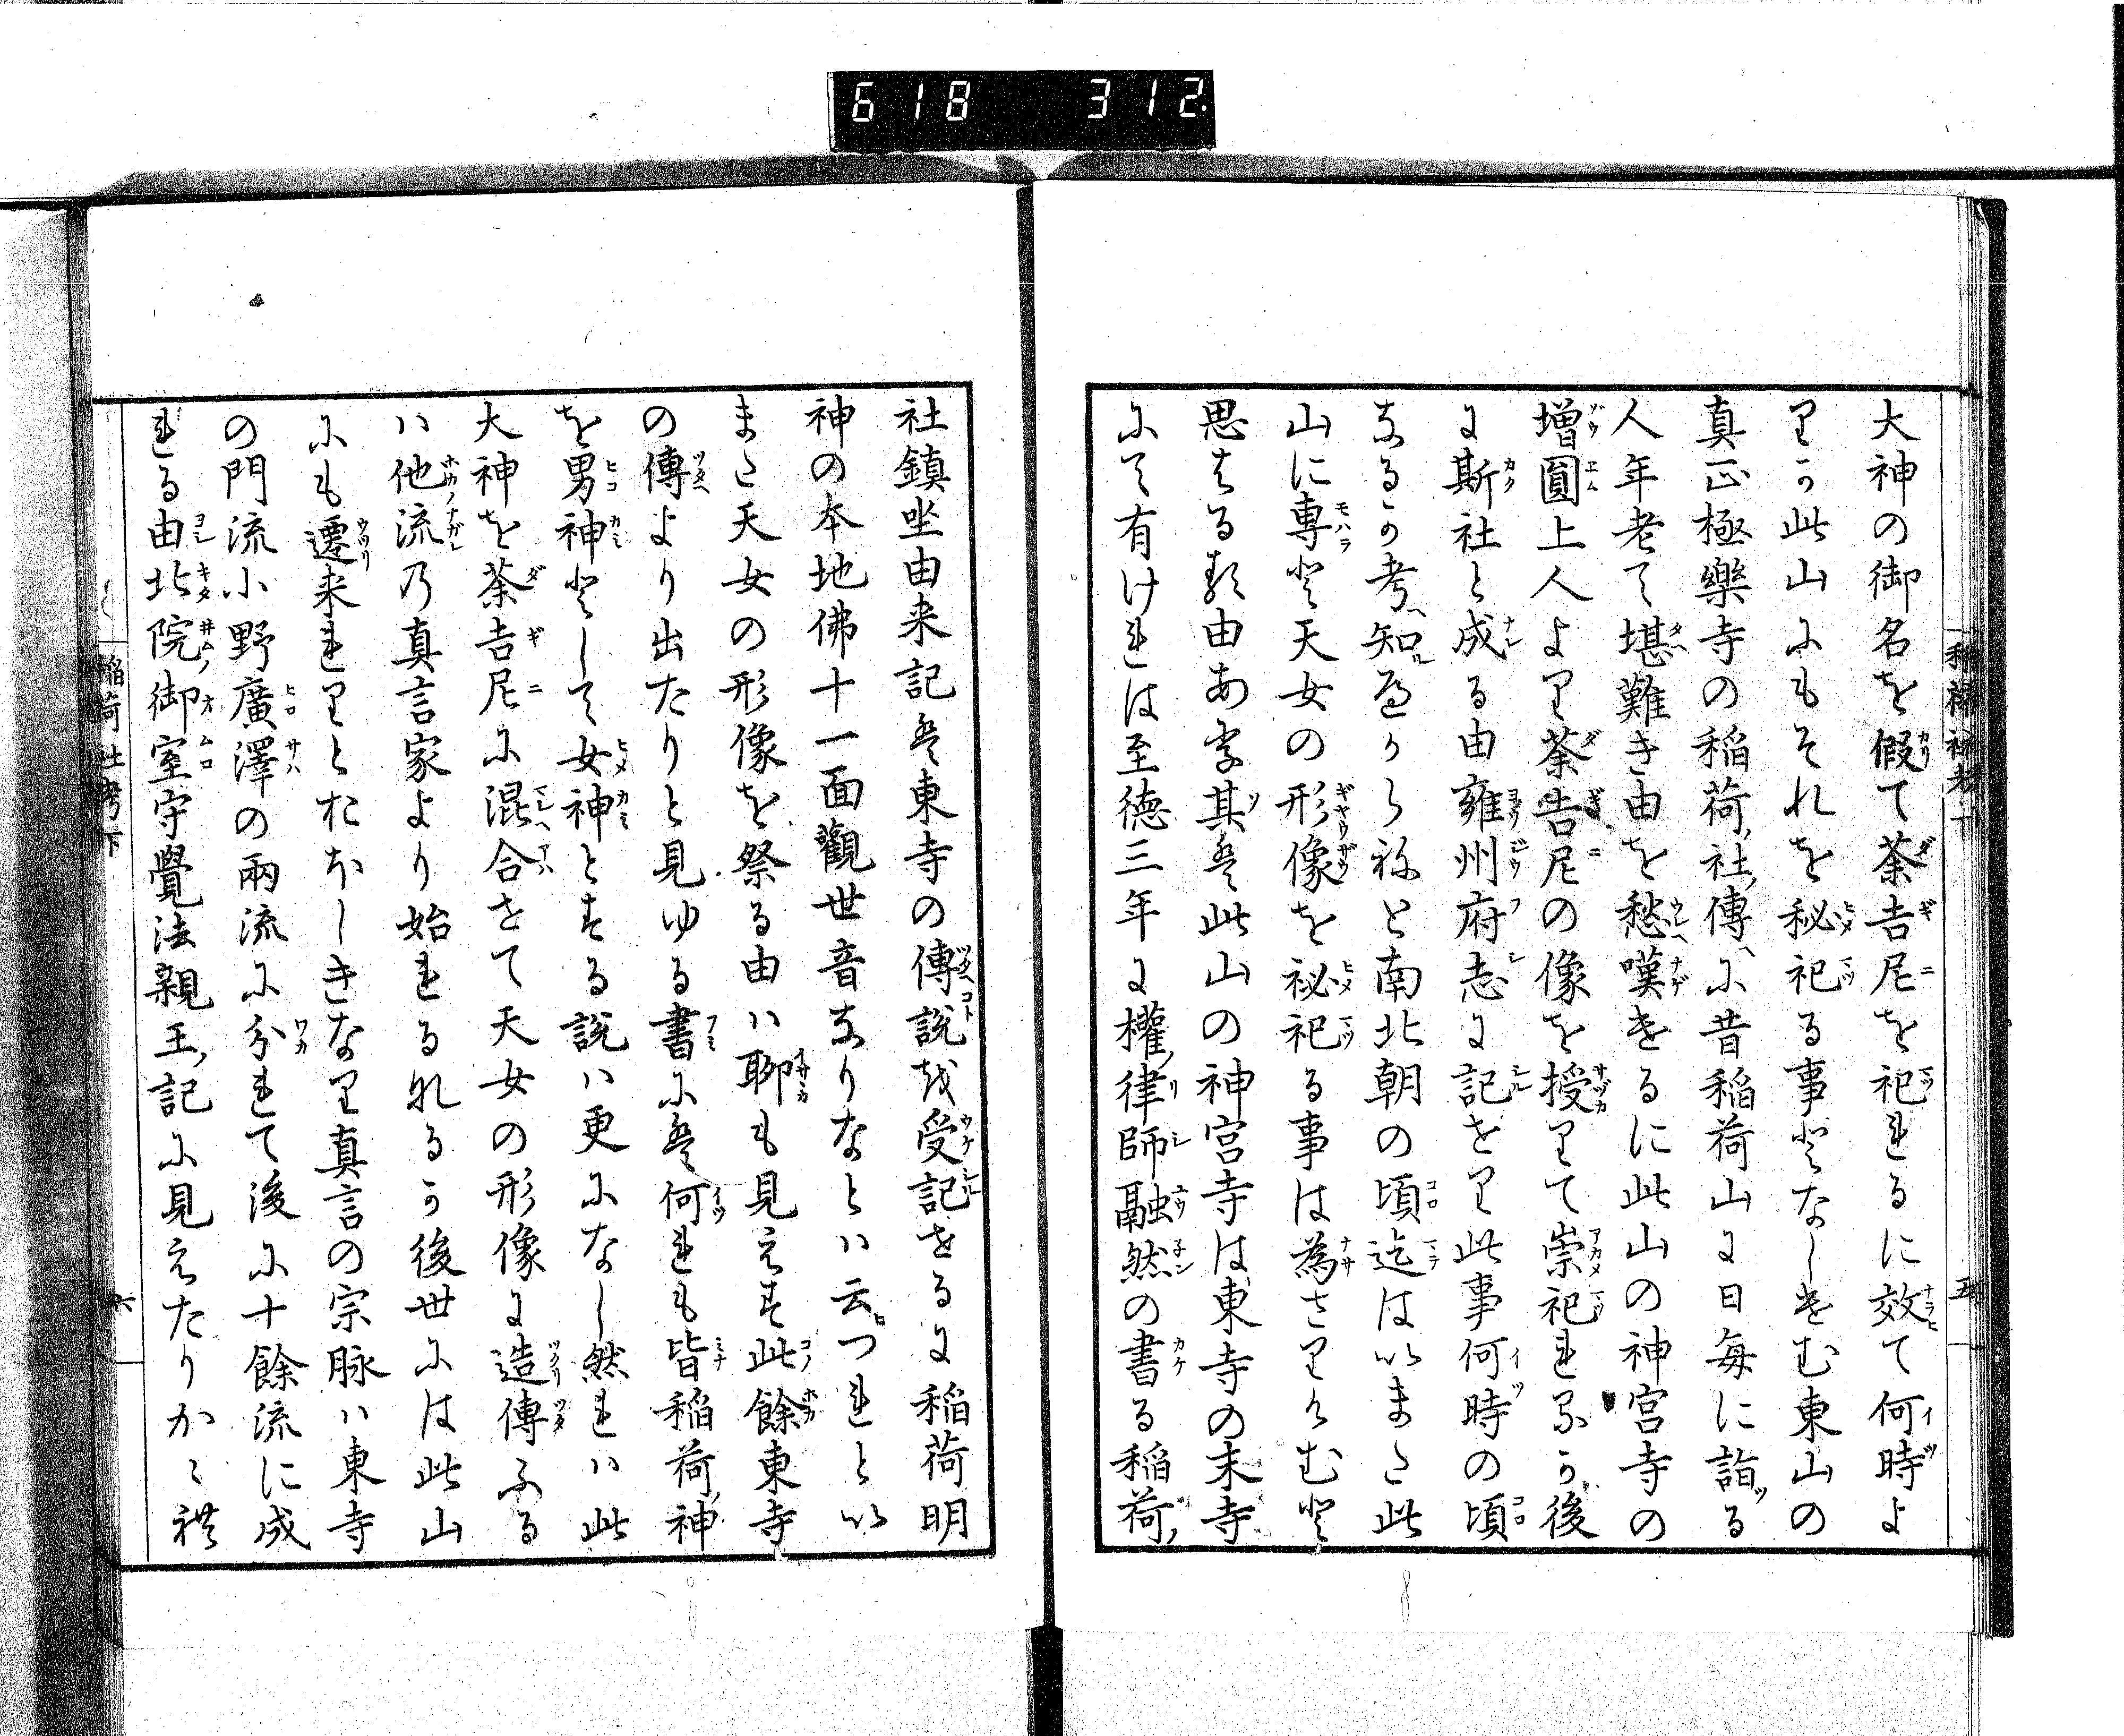 618 312
稲荷社考下
五
大神の御名を假て荼吉尼を祀れるに效て何時よ
りか此山にもそれを秘祀る事となしけむ東山の
真正極樂寺の稲荷社傳に昔稲荷山に日毎に詣る
人年老て堪難き由を愁嘆けるに此山の神宮寺の
增圓上人より荼吉尼の像を授りて崇祀れるか後
に斯社と成る由雍州府志に記せり此事何時の頃
なるか考知るへからねと南北朝の頃迄はいまた此
山に專と天女の形像を祕祀る事は為さりけむと
思はる其由は此山の神宮寺は東寺の末寺
にて有けれは至徳三年に權律師融然の書る稲荷
社鎮坐由来記は東寺の傳説を受記せるに稲荷明
神の本地佛十一面觀世音なりなとハ云つれとい
また天女の形像を祭る由ハ聊も見えす此餘東寺
の傳より出たりと見ゆる書には何れも皆稲荷神
を男神としてて女神とする説ハ更になし然れハ此
大神を荼吉尼に混合せて天女の形像に造傳ふる
ハ他流乃真言家より始れるなるか後世には此山
にも遷来れりとおほしきなり真言の宗脉ハ東寺
の門流小野廣澤の兩流に分れて後に十餘流に成
れる由北院御室守覺法親王記に見えたりかゝ禮
稲荷社考下
六